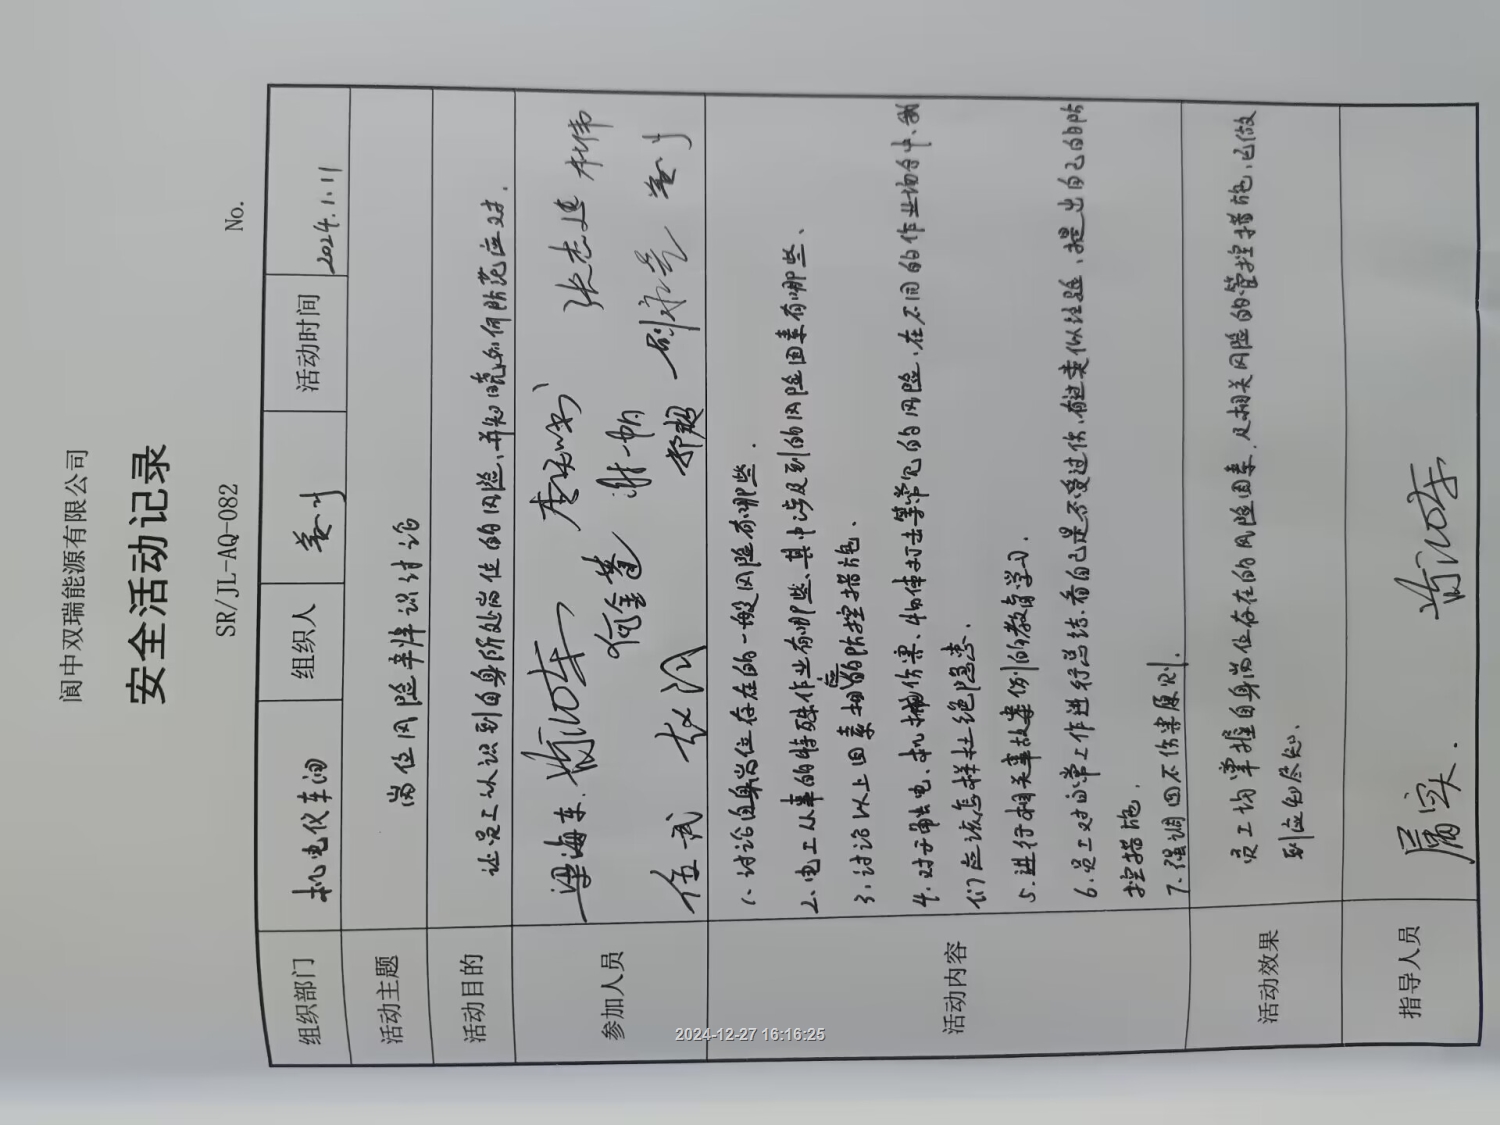 阆中双瑞能源有限公司
安全活动记录
SR/JL-AQ-082
No.
组织部门 机电仪车间 组织人 活动时间 2024.1.11
活动主题 岗位风险辛辨识讨论
活动目的 让员工认识到自身所处岗位的风险、并知晓如何防范应对.
参加人员 梁海东. 张志建 林伟
何金蓬 谢一帆
伍武 赵 邓超
活动内容
1、讨论自身岗位存在的一般风险有哪些.
2、电工从事的特殊作业有哪些、其中涉及到的风险因素有哪些、
3、讨论以上因素相应的防控措施.
4、对于触电、机械伤害、物体打击等常见的风险、在不同的作业场合中、我
们应该怎样杜绝隐患.
5、进行相关事故案例的教育学习.
6、员工对日常工作进行总结、看自己是不受过伤、有过类似经验、提出自己的防
控措施.
7、强调四不伤害原则.
活动效果 员工均掌握自身岗位存在的风险因素、及相关风险的管控措施、已做
到应知尽知.
指导人员
2024-12-27 16:16:25